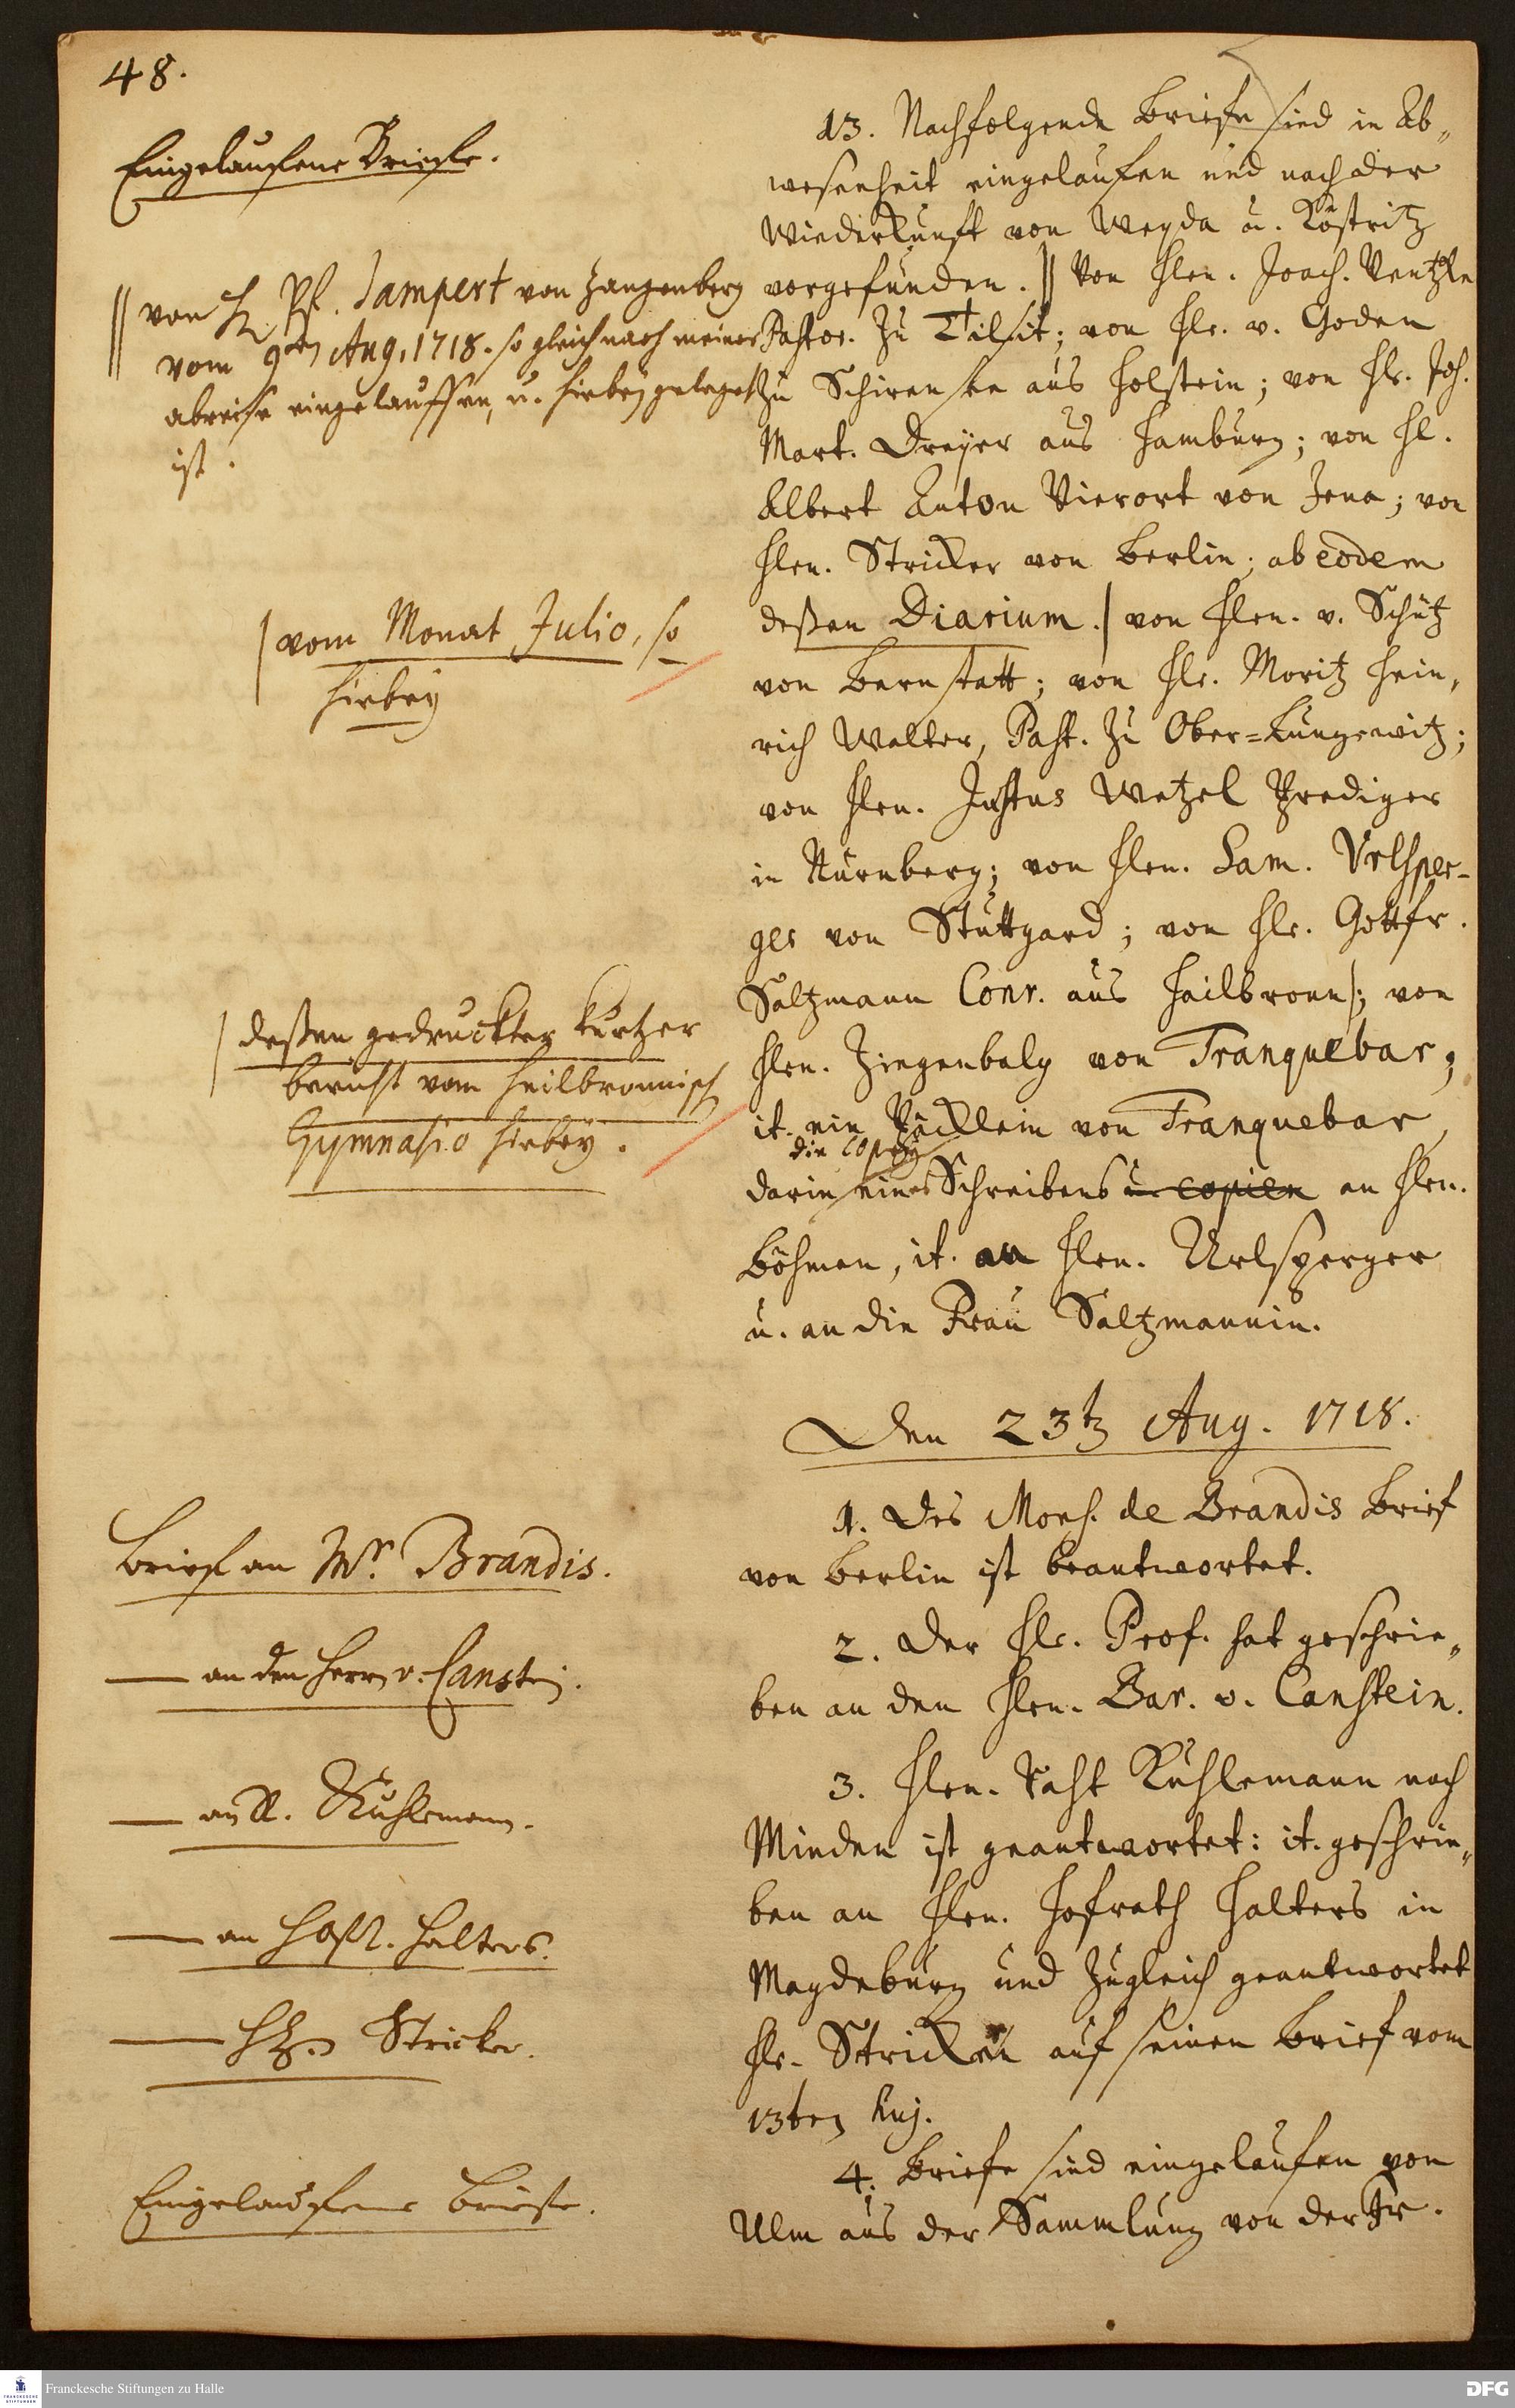 48.
Eingelaufene Briefe.
|| von H. Pf. Lampert von Zangenberg
vom 9ten Aug. 1718. so gleich nach meiner
abreise eingelauffen, u. hirbey geleget
ist.
| vom Monat Julio, so
hirbey
| deßen gedruckter kurtzer
bericht vom Heilbronnisch
Gymnasio hirbey.
Brief an Mr. Brandis.
— an den Herrn v. Canstein.
— an R. Kuhlemann.
— an Hoffr. Halters.
— H. Stricker.
Eingelaufene Briefe.
13. Nachfolgende Briefe sind in Ab„
wesenheit eingelaufen und nach der
Wiederkunft von Weyda u. Köstritz
vorgefunden. || Von Hrn. Joach. Rentzle
Pastor. zu Tilsit; von Hr. v. Goden
zu Schirensee aus Holstein; von Hr. Joh.
Mart. Dreyer aus Hamburg; von H.
Albert Anton Vierort von Jena; von
Hrn. Stricker von Berlin; ab eodem
deßen Diarium. | von Hrn. v. Schütz
von Bernstatt; von Hr. Moritz Hein„
rich Walter, Past. zu Ober=Lungewitz;
von Hrn. Justus Wetzel Prediger
in Nürnberg; von Hrn. Sam. Vrlsper-
ger von Stuttgard; von Hr. Gottfr.
Saltzmann Conr. aus Hailbronn |; von
Hrn. Ziegenbalg von Tranquebar;
it. ein Päcklein von Tranquebar,
die Copey
darin eines Schreibens u. copien an Hrn.
Böhmen, it. an Hrn. Urlsperger
u. an die Frau Saltzmannin.
Den 23t. Aug. 1718.
1. Des Mons. de Brandis Brief
von Berlin ist beantwortet.
2. Der Hr. Prof. hat geschrie„
ben an den Hrn. Bar. v. Canstein.
3. Hrn. Raht Kuhlemann nach
Minden ist geantwortet: it. geschrie„
ben an Hrn. Hofrath Halters in
Magdeburg und zugleich geantwortet
Hr. Strickern auf seinen Brief vom
13ten huj.
4. Briefe sind eingelaufen von
Ulm aus der Sammlung von der Fr.
Franckesche Stiftungen zu Halle
DFG